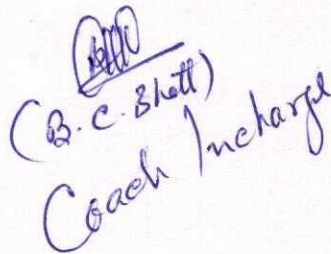 (B.C. Bhatt)
Coach Incharge